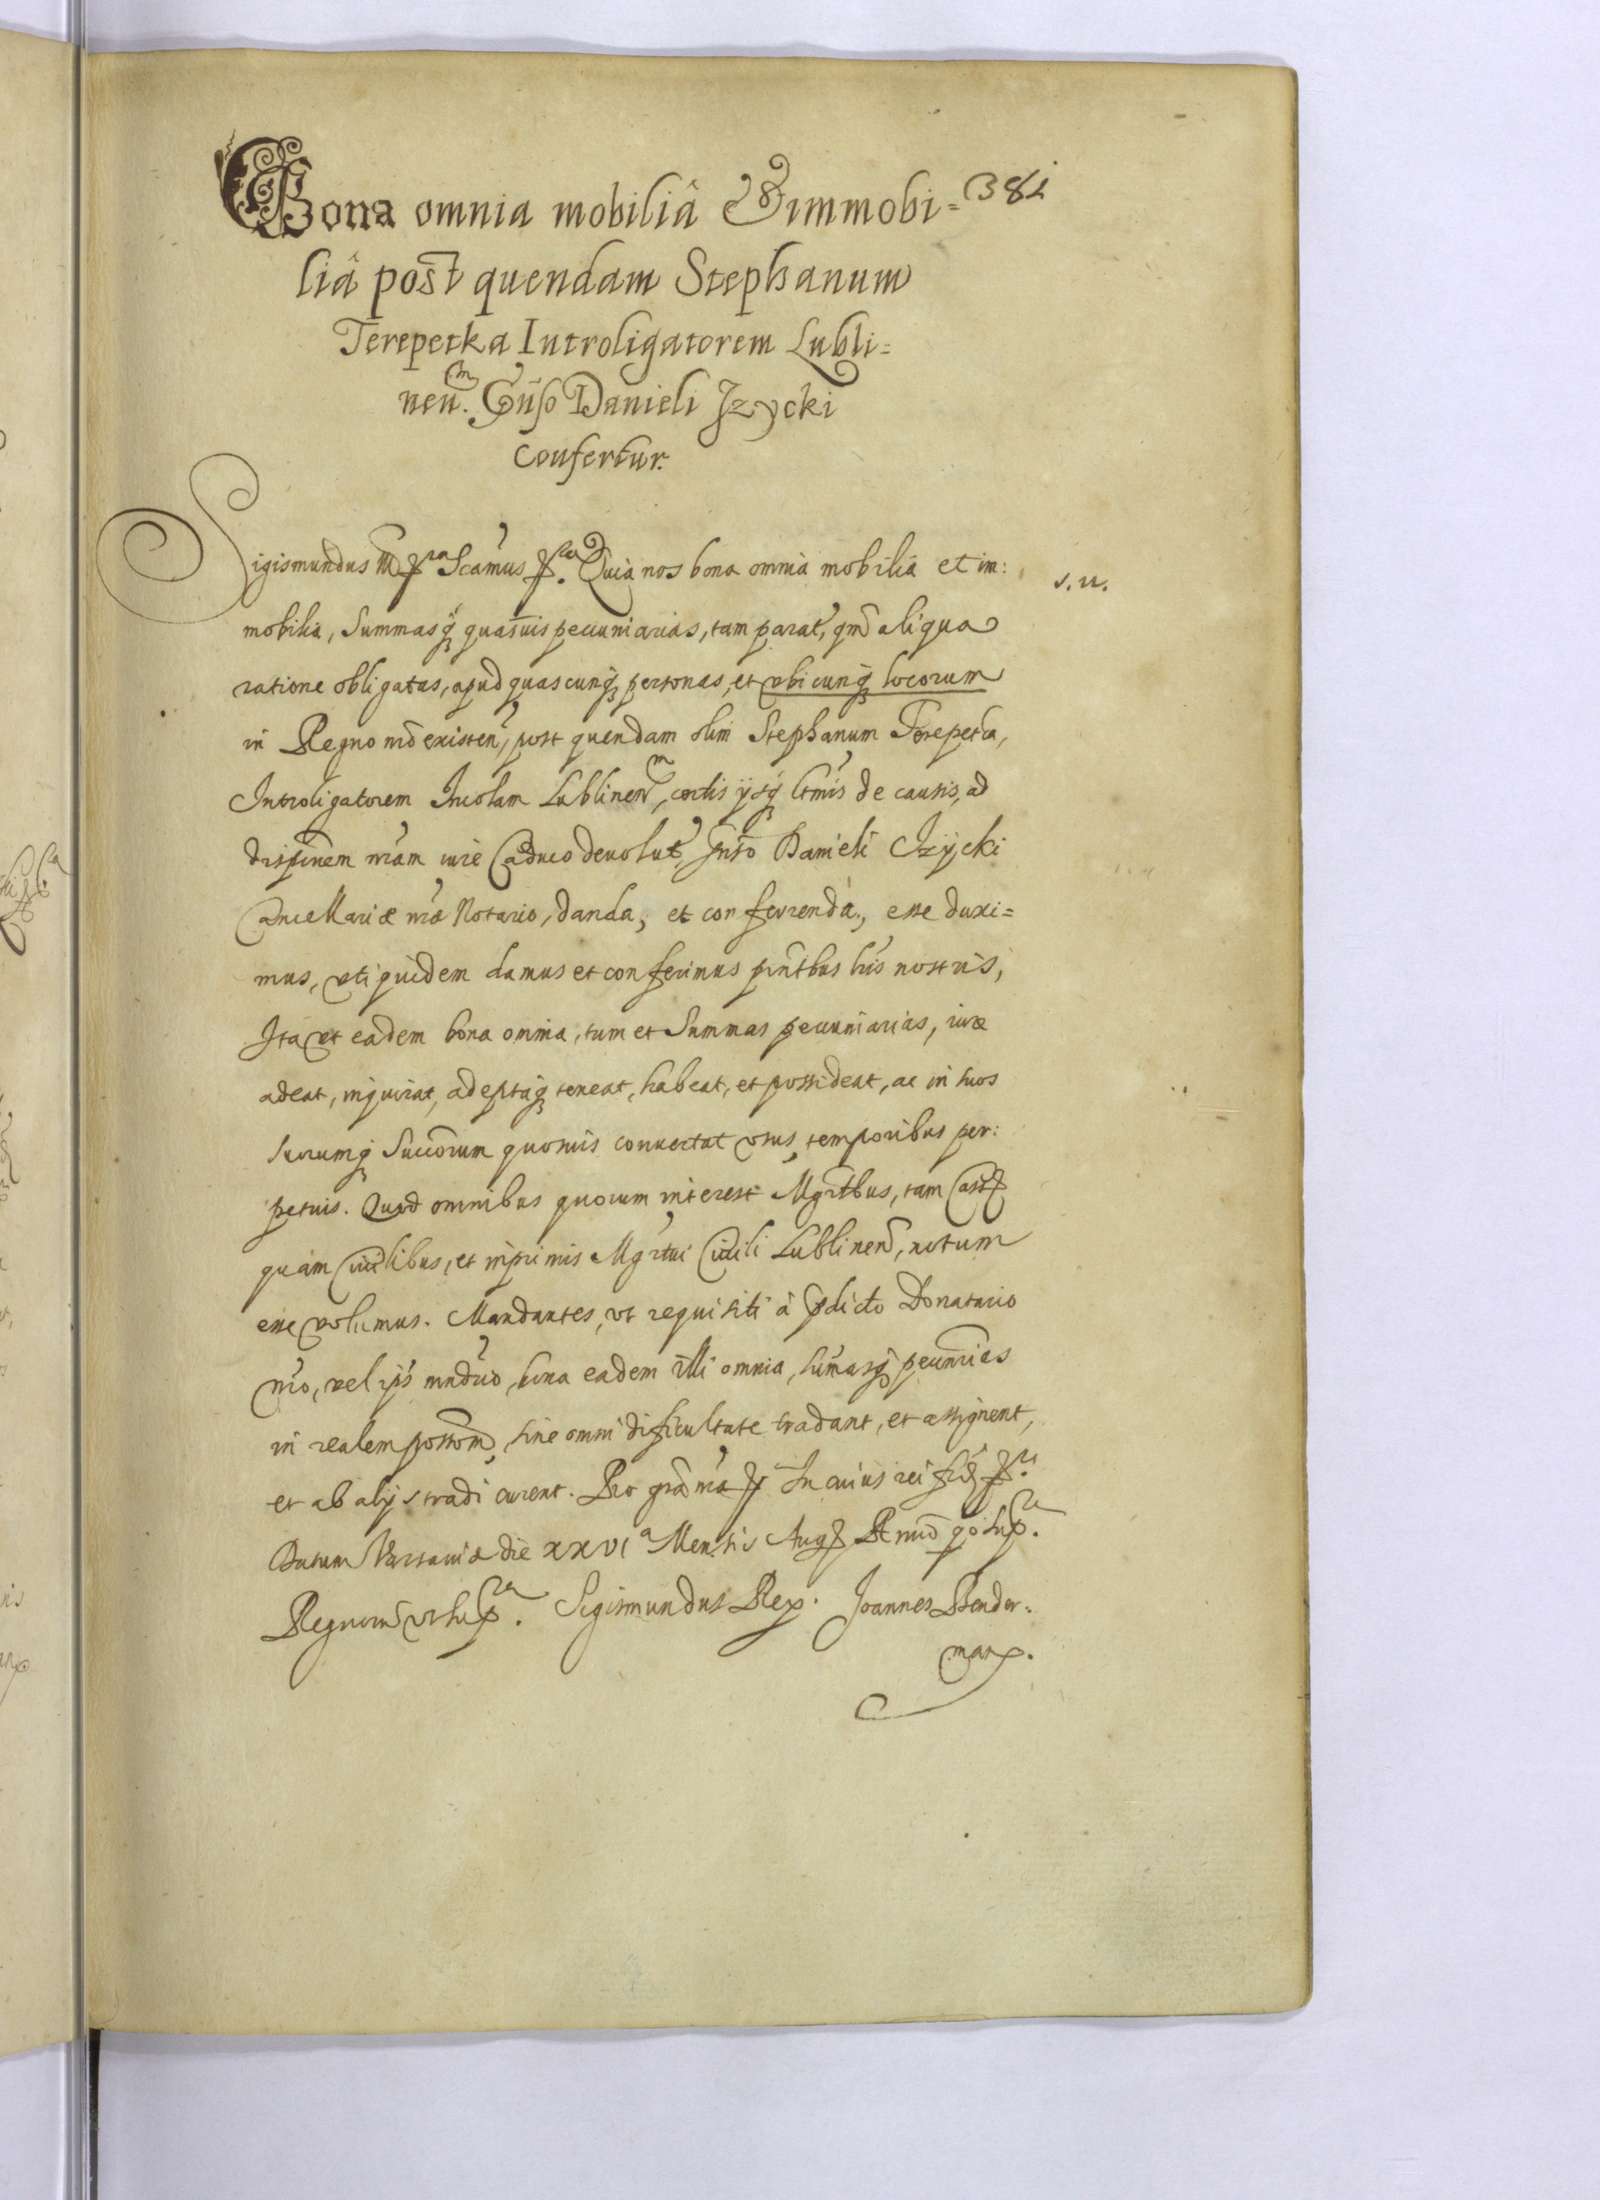 Bona omnia mobiliâ & immobi= 381
liâ post quendam Stephanum
Terepetka Introligatorem Lubli=
nen̄. Gn̄so Danieli Izycki
Confertur.
Sigismundus Scamus Quia nos bona omnia mobilia et im:
s. n.
mobilia, Summasq́ quasuis pecuniarias, tam parat, qm̄ aliqua
ratione obligatas, apud quascunq́ personas, et vbicunq́ locorum
in Regno nr̄o existen, post quendam olim Stephanum Terepetka,
Introligatorem Incolam Lublinen, certis ijsq́ ltm̄is de causis, ad
disp̄nem nr̄am iure Caduco deuolut, Gn̄so Danieli Izÿcki
Cancellariæ nr̄æ Notario, danda, et conferrenda, esse duxi=
mus, vti quidem damus et conferimus pn̄tibus lr̄is nostris,
Ita vt eadem bona omnia, tum et Summas pecuniarias, iure
adeat, inquirat, adeptaq́ teneat, habeat, et possideat, ac in suos
suorumq́ Succorum quosuis conuertat vsus, temporibus per:
petuis. Quod omnibus quorum interest Mgrtbus, tam Castr
quam Ciuilibus, et inprimis Mgrtui Ciuili Lublinen, notum
esse volumus. Mandantes, vt requisiti à pdicto Donatario
nr̄o, vel ips̄ mndrio, bona eadem illi omnia, sum̄asq́ pecunrias
in realem possom, sine omni difficultate tradant, et assignent,
et ab alijs tradi curent. Pro gra nr̄a In cuius rei fid
Datum Varsauiæ die XXVIª Mensis Aug Aº Dni qo sup.
Regnorū vt sup. Sigismundus Rex. Joannes Bender:
man.